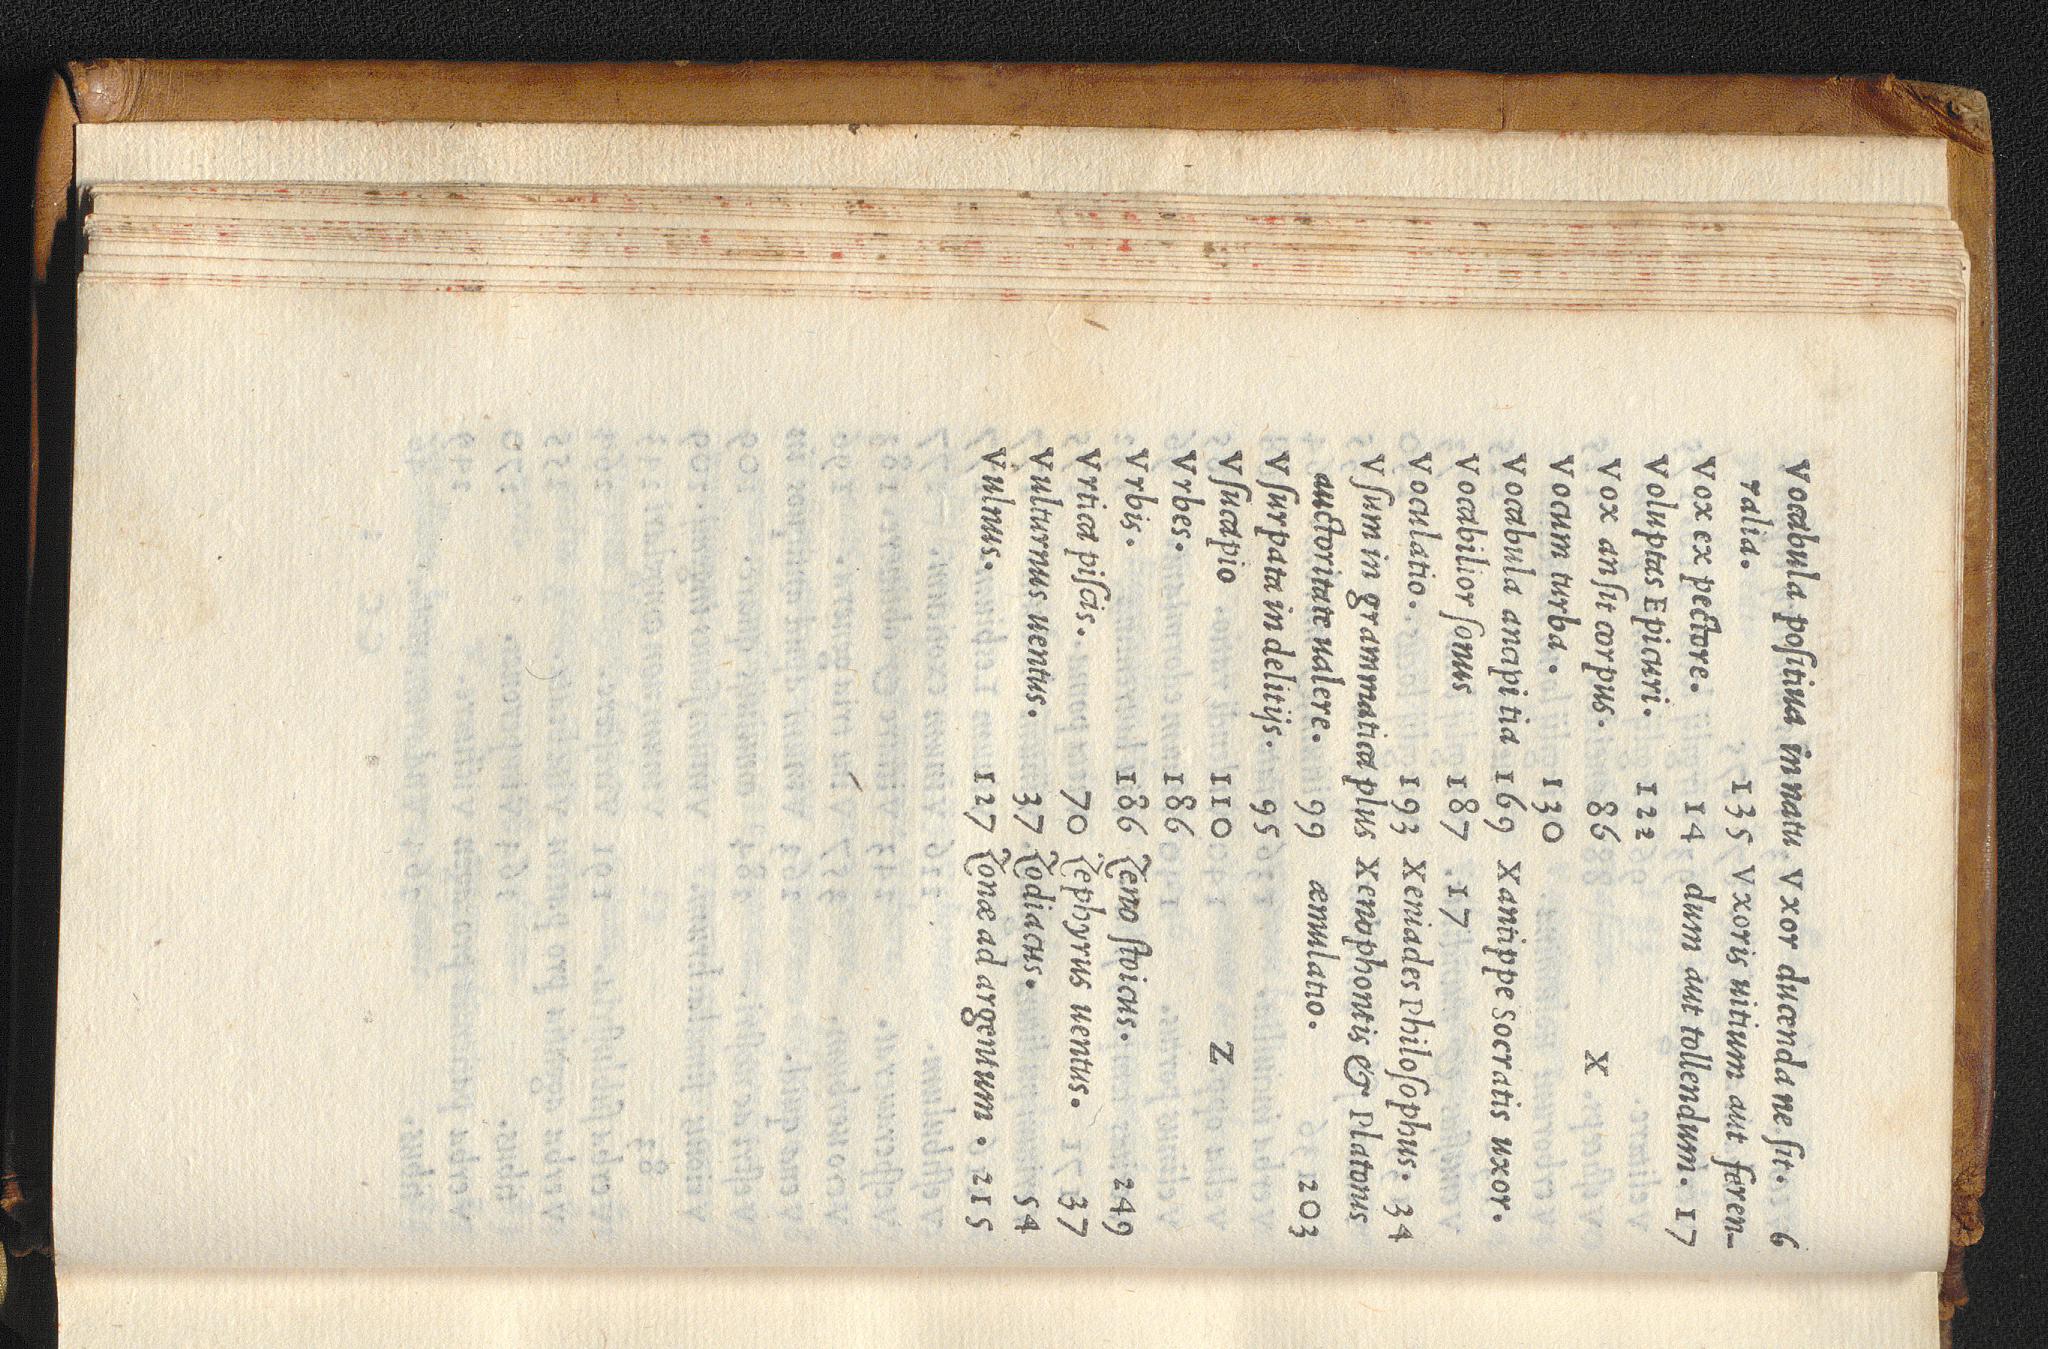 Vocabula poſitiua in natu
ralia. 135
Vox ex pectore. 14
Voluptas Epicuri. 122
Vox an ſit corpus. 86
Vocum turba. 130
Vocabula ancipitia 169
Vocabilior ſonus 187
Voculatio. 193
Vſum in grammatica plus
auctoritate ualere. 99
Vſurpata in delitijs. 95
Vſucapio 110
Vrbes. 186
Vrbis. 186
Vrtica piſcis. 70
Vulturnus uentus. 37
Vulnus. 127
Vxor ducenda ne ſit. 6
Vxoris uitium aut feren-
dum aut tollendum. 17
X
Xantippe Socratis uxor.
17
Xeniades Philoſophus. 34
Xenophontis & Platonis
æmulatio. 203
Z
Zeno ſtoicus. 249
Zephyrus uentus. 37
Zodiacus. 54
Zonæ ad argentum. 215